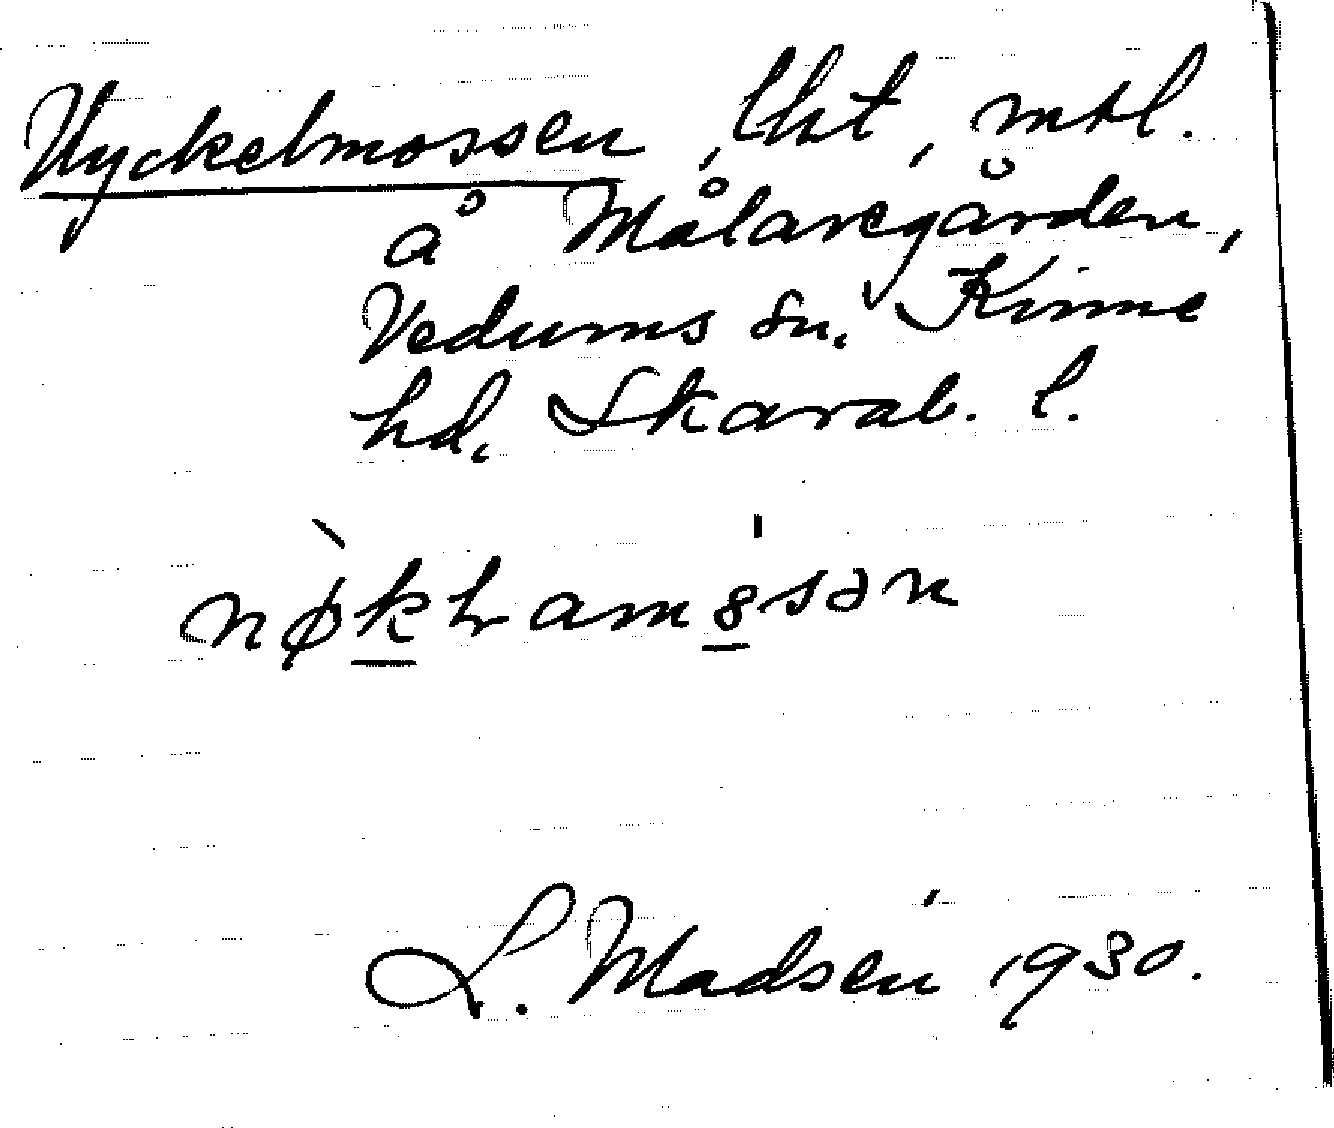 Nyckelmossen, lht, mtl.
å Målaregården,
Vedums sn. Kinne
hd. Skarab. l.
L. Madsén 1930.